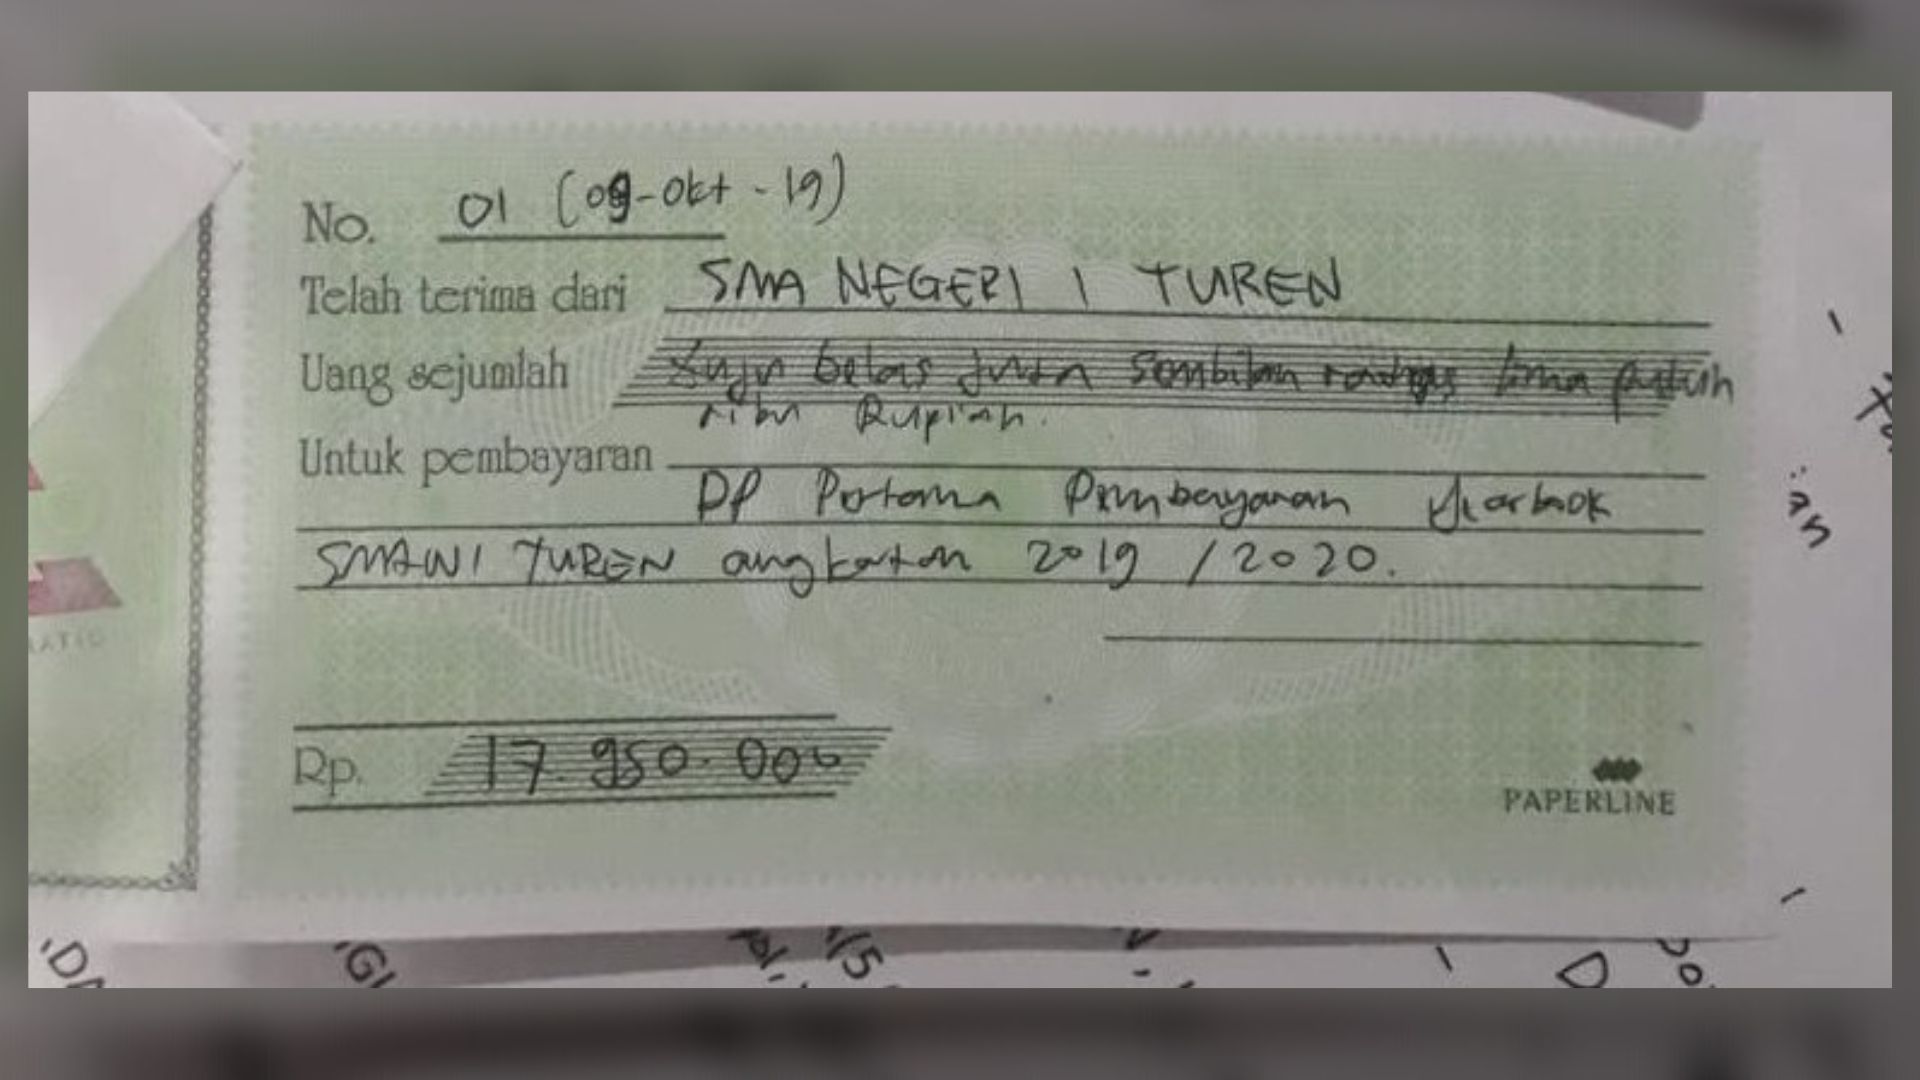 No. 01 (09-Okt-19)
Telah terima dari SMA NEGERI 1 TUREN
Uang sejumlah Tuju belas Juta Sembilan ratus lima puluh
ribu Rupiah.
Untuk pembayaran
DP Pertama Pembayaran Yearbook
SMAN 1 TUREN angkatan 2019 / 2020.
Rp. 17.950.000
PAPERLINE